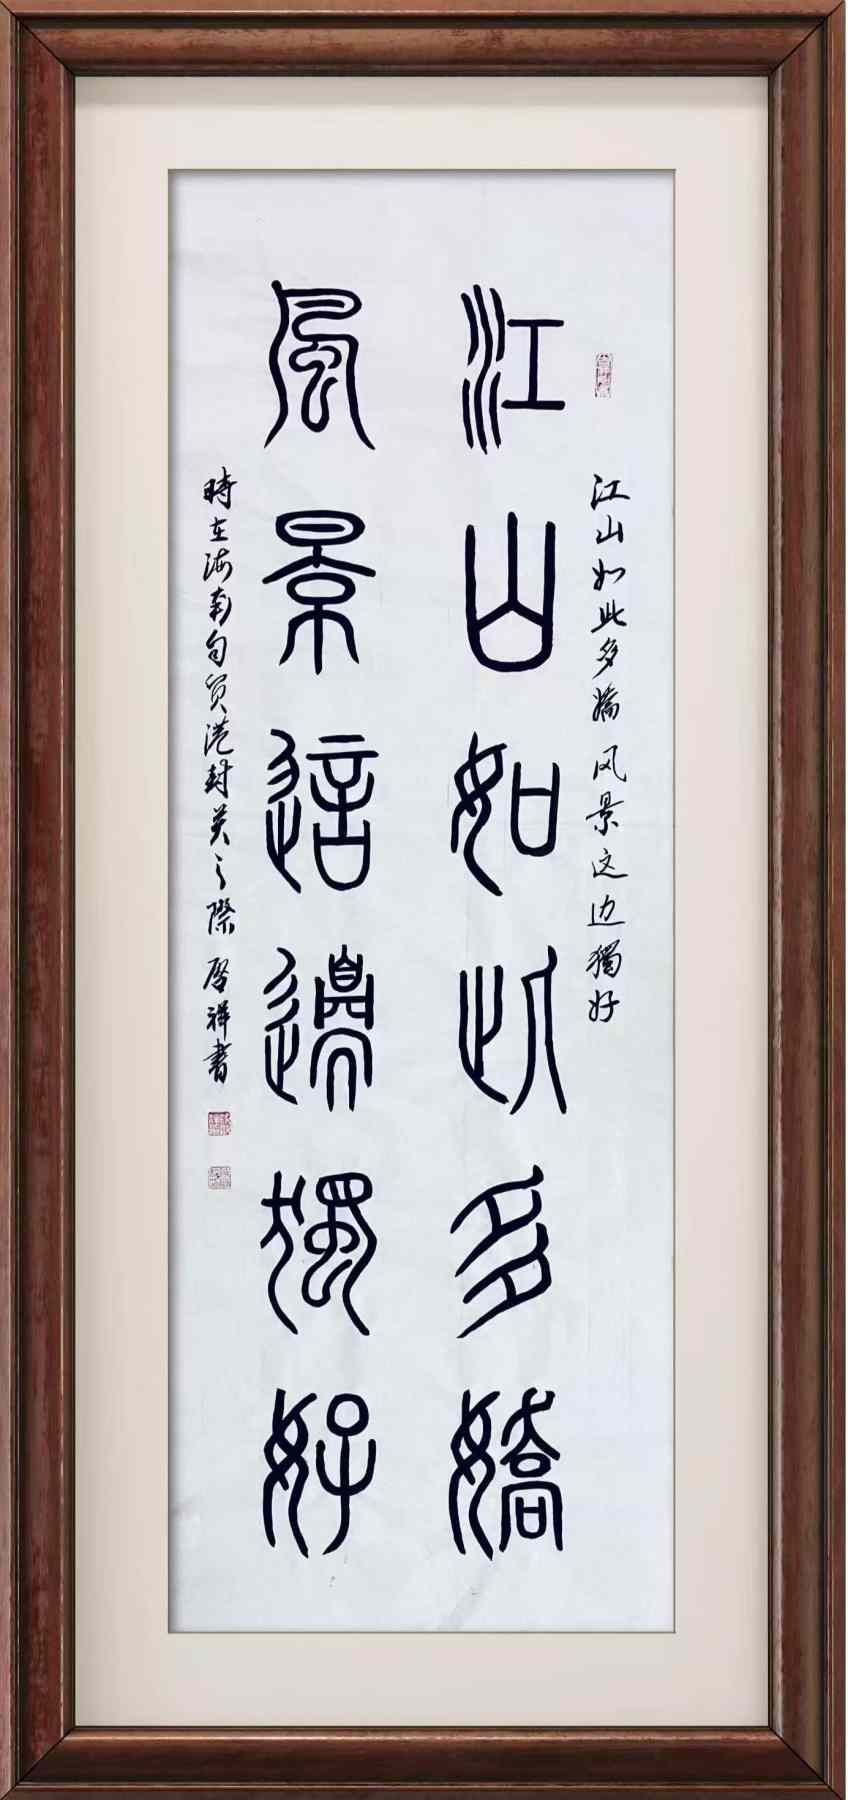 江山如此多嬌风景这边獨好
江山如此多嬌
風景這邊獨好
時在海南自贸港封关之際 啓祥書